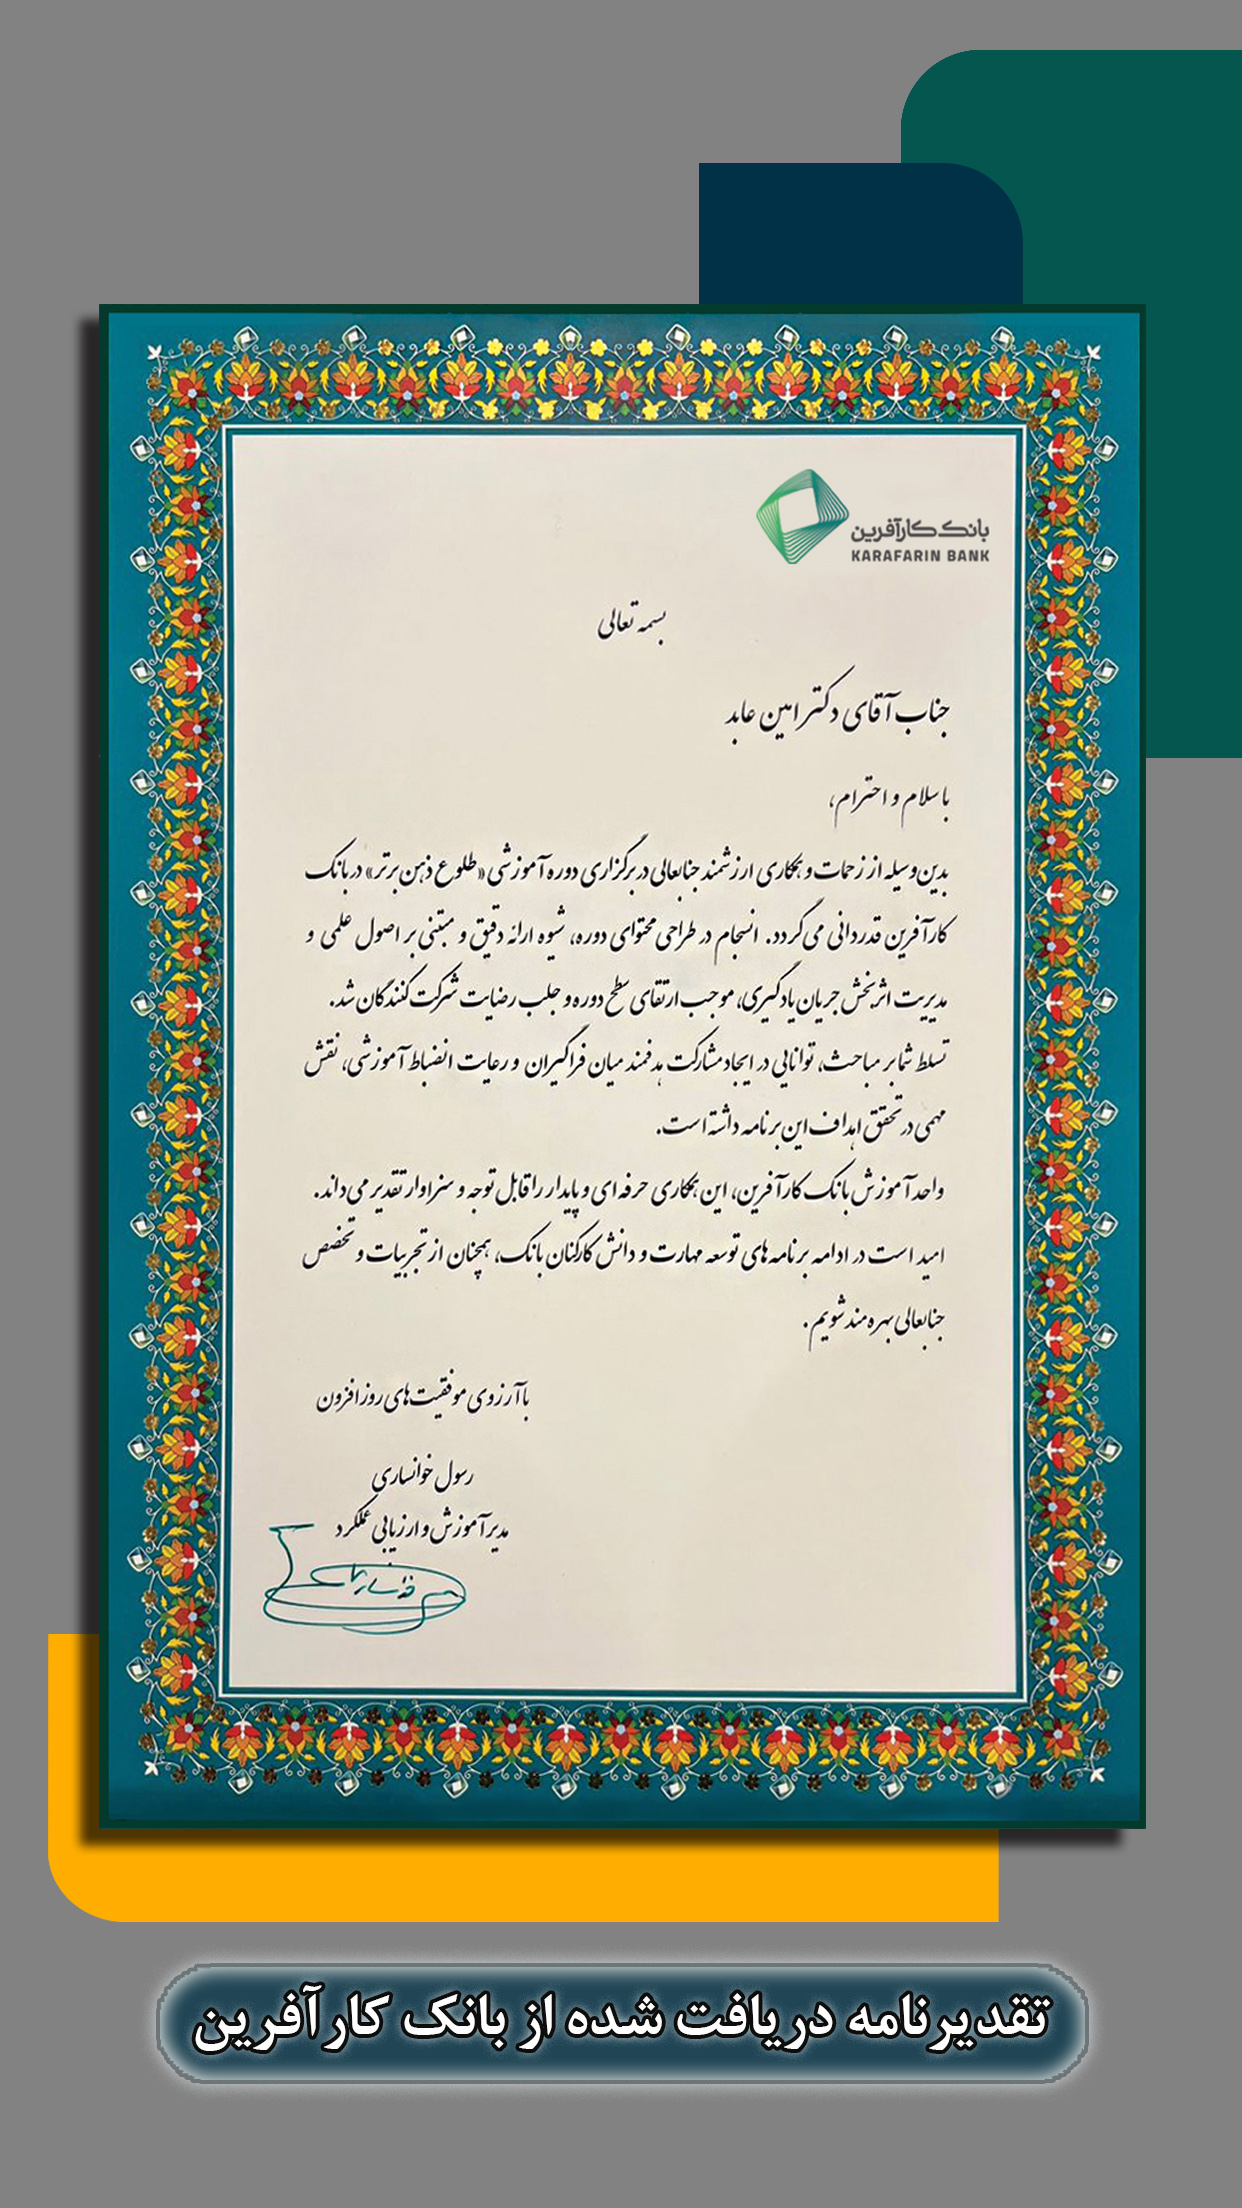 بانک کارآفرین
KARAFARIN BANK
بسمه تعالی
جناب آقای دکتر امین عابد
با سلام و احترام،
بدین وسیله از زحمات و همکاری ارزشمند جنابعالی در برگزاری دوره آموزشی «طلوع ذهن برتر» در بانک
کارآفرین قدردانی می‌گردد. انسجام در طراحی محتوای دوره، شیوه ارائه دقیق و مبتنی بر اصول علمی و
مدیریت اثربخش جریان یادگیری، موجب ارتقای سطح دوره و جلب رضایت شرکت‌کنندگان شد.
تسلط شما بر مباحث، توانایی در ایجاد مشارکت هدفمند میان فراگیران و رعایت انضباط آموزشی، نقش
مهمی در تحقق اهداف این برنامه داشته است.
واحد آموزش بانک کارآفرین، این همکاری حرفه‌ای و پایدار را قابل توجه و سزاوار تقدیر می‌داند.
امید است در ادامه برنامه‌های توسعه مهارت و دانش کارکنان بانک، همچنان از تجربیات و تخصص
جنابعالی بهره‌مند شویم.
با آرزوی موفقیت‌های روزافزون
رسول خوانساری
مدیر آموزش و ارزیابی عملکرد
تقدیرنامه دریافت شده از بانک کارآفرین